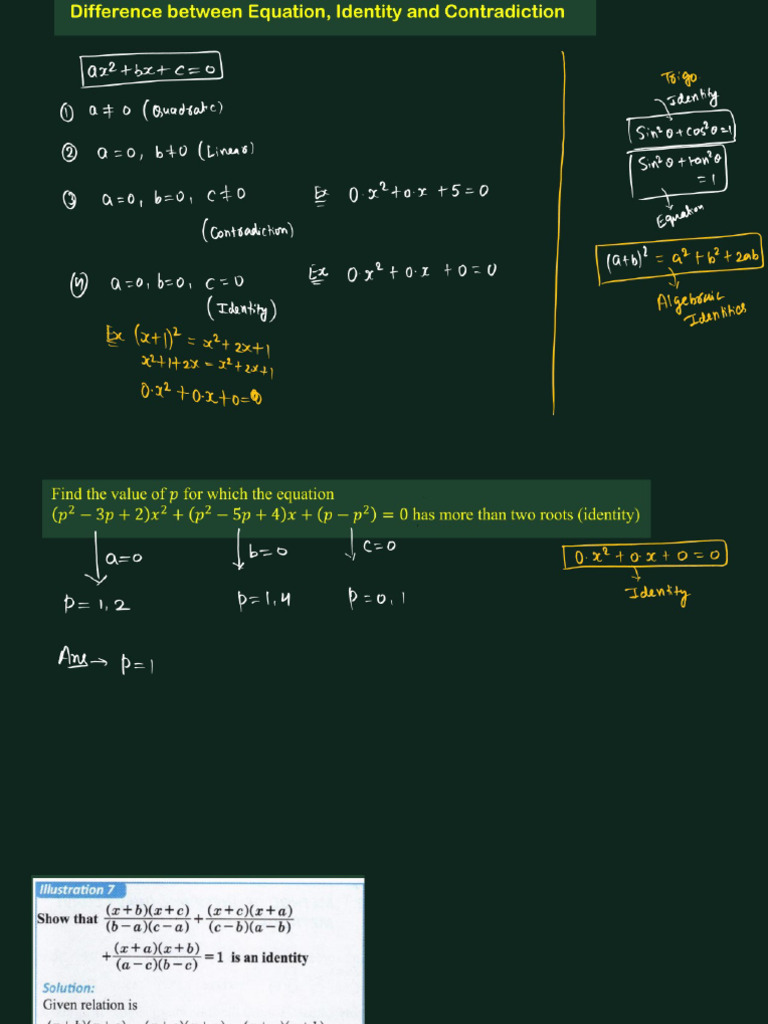 Difference between Equation, Identity and Contradiction
ax² + bx + c = 0
① a ≠ 0 (Quadratic)
② a = 0, b ≠ 0 (Linear)
③ a = 0, b = 0, c ≠ 0 Ex 0·x² + 0·x + 5 = 0
(Contradiction)
④ a = 0, b = 0, c = 0 Ex 0·x² + 0·x + 0 = 0
(Identity)
Ex (x+1)² = x² + 2x + 1
x² + 1 + 2x = x² + 2x + 1
0·x² + 0·x + 0 = 0
Trigo
Identity
Sin²θ + cos²θ = 1
Sin²θ + tan²θ
= 1
Equation
(a+b)² = a² + b² + 2ab
Algebraic
Identities
Find the value of p for which the equation
(p² − 3p + 2)x² + (p² − 5p + 4)x + (p − p²) = 0 has more than two roots (identity)
a=0 b=0 c=0
p = 1, 2 p = 1, 4 p = 0, 1
Ans → p = 1
0·x² + 0·x + 0 = 0
Identity
Illustration 7
Show that (x+b)(x+c)/(b−a)(c−a) + (x+c)(x+a)/(c−b)(a−b)
+ (x+a)(x+b)/(a−c)(b−c) = 1 is an identity
Solution:
Given relation is